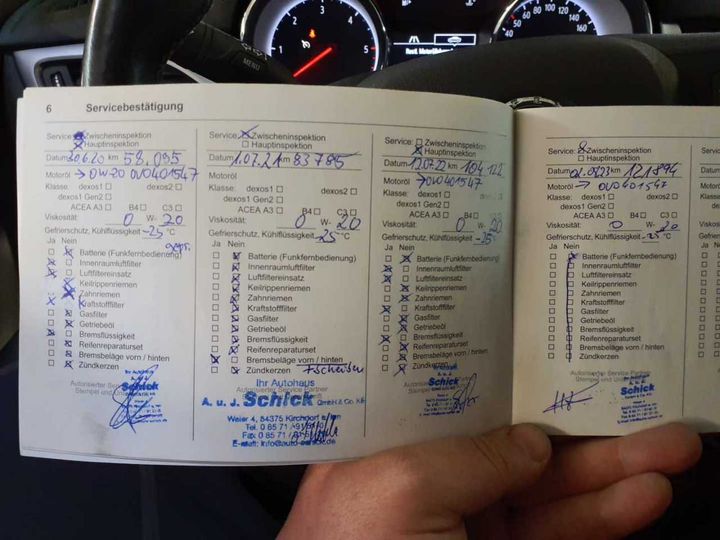 1 2 3 4 5
MENU
40 60 80 100 120 140 160
6 Servicebestätigung
Service: Zwischeninspektion
Hauptinspektion
Datum 30.6.20 km 58.095
Motoröl → 0W-20 0V0401547
Klasse: dexos1 dexos2
dexos1 Gen2
ACEA A3 B4 C3
Viskosität: 0 W- 20
Gefrierschutz, Kühlflüssigkeit -25 °C
Ja Nein
Batterie (Funkfernbedienung)
Innenraumluftfilter
Luftfiltereinsatz
Keilrippenriemen
Zahnriemen
Kraftstofffilter
Gasfilter
Getriebeöl
Bremsflüssigkeit
Reifenreparaturset
Bremsbeläge vorn / hinten
Zündkerzen
Autorisierter Service Partner
Ihr Autohaus
A. u. J.
Schick
Service: Zwischeninspektion
Hauptinspektion
Datum 1.07.21 km 83785
Motoröl
Klasse: dexos1 dexos2
dexos1 Gen2
ACEA A3 B4 C3
Viskosität: 0 W- 20
Gefrierschutz, Kühlflüssigkeit -25 °C
Ja Nein
Batterie (Funkfernbedienung)
Innenraumluftfilter
Luftfiltereinsatz
Keilrippenriemen
Zahnriemen
Kraftstofffilter
Gasfilter
Getriebeöl
Bremsflüssigkeit
Reifenreparaturset
Bremsbeläge vorn / hinten
Zündkerzen
Ihr Autohaus
A. u. J. Schick GmbH & Co. KG
Weier 4, 84375 Kirchdorf a. Inn
Tel. 0 85 71 /
Fax 0 85 71 /
E-mail: info@auto-schick.de
Service: Zwischeninspektion
Hauptinspektion
Datum 12.07.22 km 104.122
Motoröl → 0V0401547
Klasse: dexos1 dexos2
dexos1 Gen2
ACEA A3 B4 C3
Viskosität: 0 W- 20
Gefrierschutz, Kühlflüssigkeit -25 °C
Ja Nein
Batterie (Funkfernbedienung)
Innenraumluftfilter
Luftfiltereinsatz
Keilrippenriemen
Zahnriemen
Kraftstofffilter
Gasfilter
Getriebeöl
Bremsflüssigkeit
Reifenreparaturset
Bremsbeläge vorn / hinten
Zündkerzen
Autorisierter Service Partner
Schick
Service: Zwischeninspektion
Hauptinspektion
Datum km 121894
Motoröl → 0V0401547
Klasse: dexos1 dexos2
dexos1 Gen2
ACEA A3 B4 C3
Viskosität: 0 W- 20
Gefrierschutz, Kühlflüssigkeit -25 °C
Ja Nein
Batterie (Funkfernbedienung)
Innenraumluftfilter
Luftfiltereinsatz
Keilrippenriemen
Zahnriemen
Kraftstofffilter
Gasfilter
Getriebeöl
Bremsflüssigkeit
Reifenreparaturset
Bremsbeläge vorn / hinten
Zündkerzen
Autorisierter Service Partner
Schick